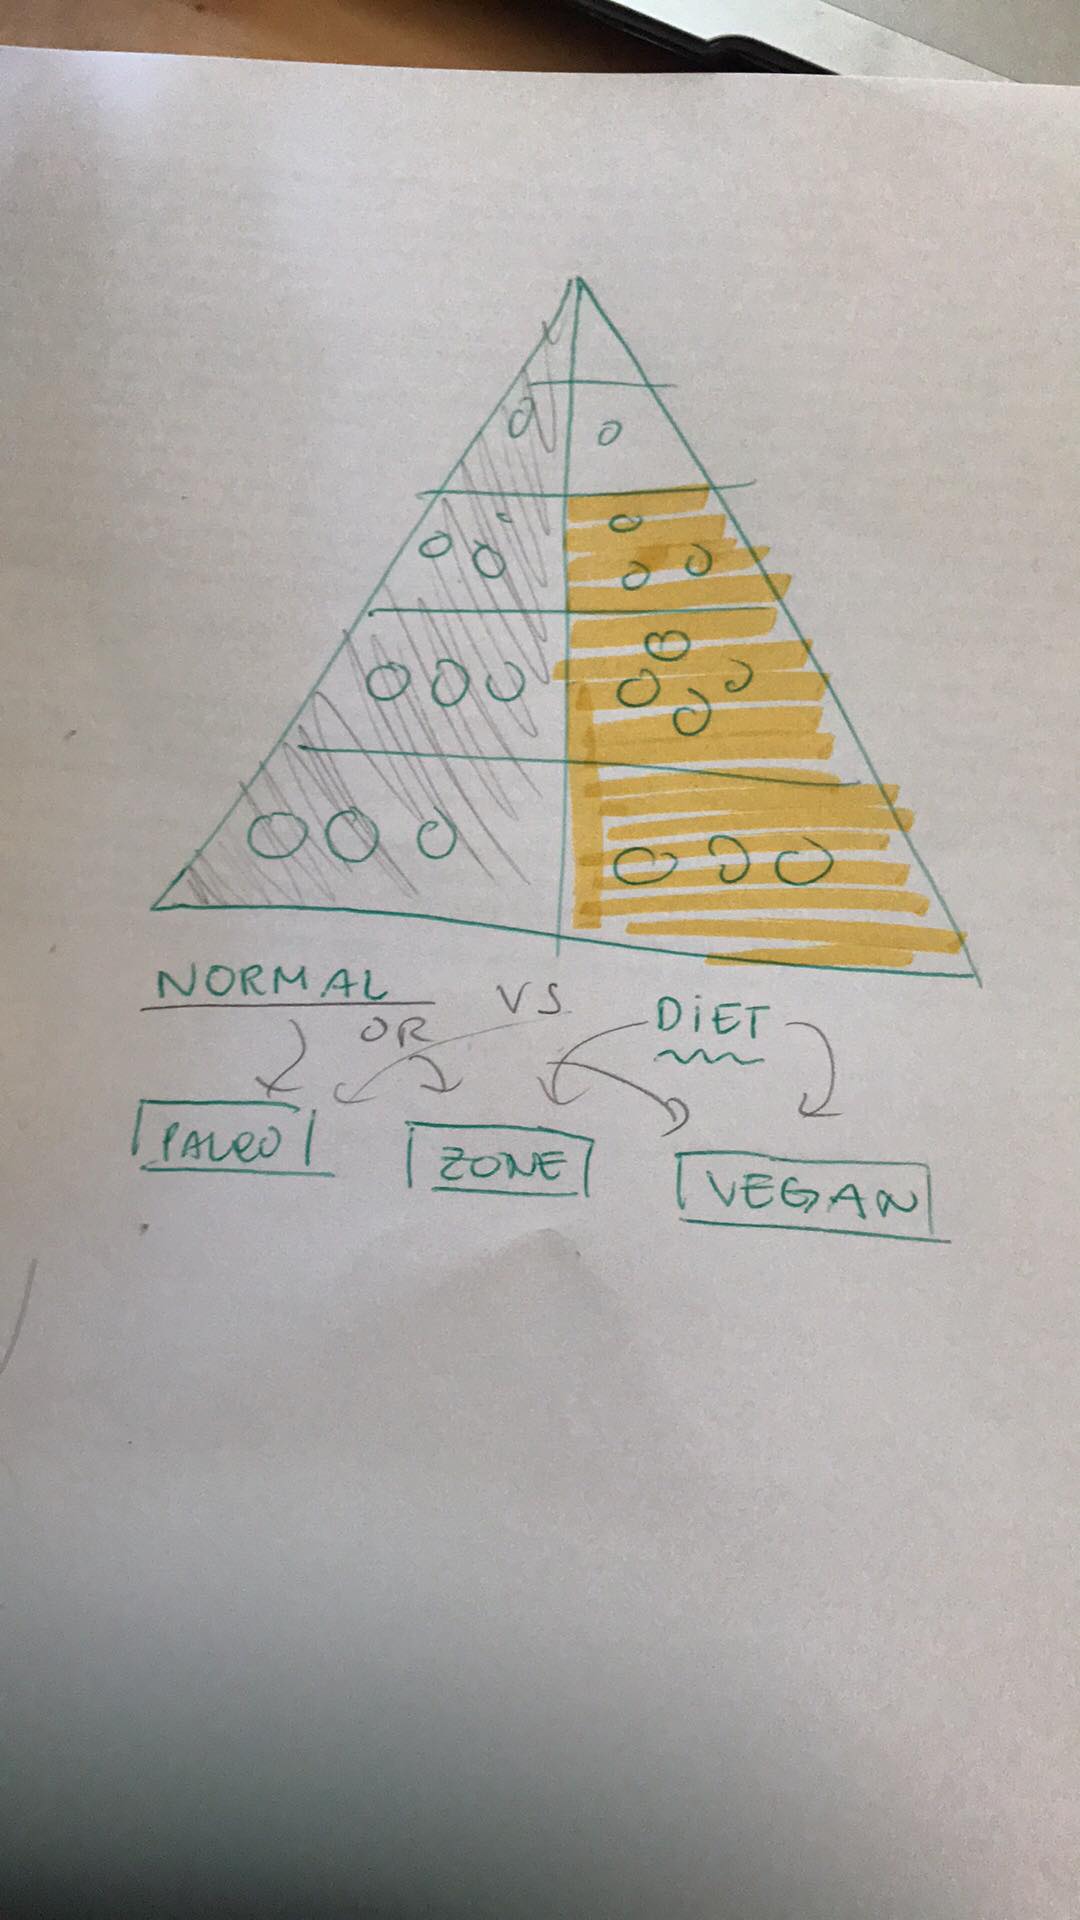 NORMAL VS DiET
OR
PALEO ZONE VEGAN